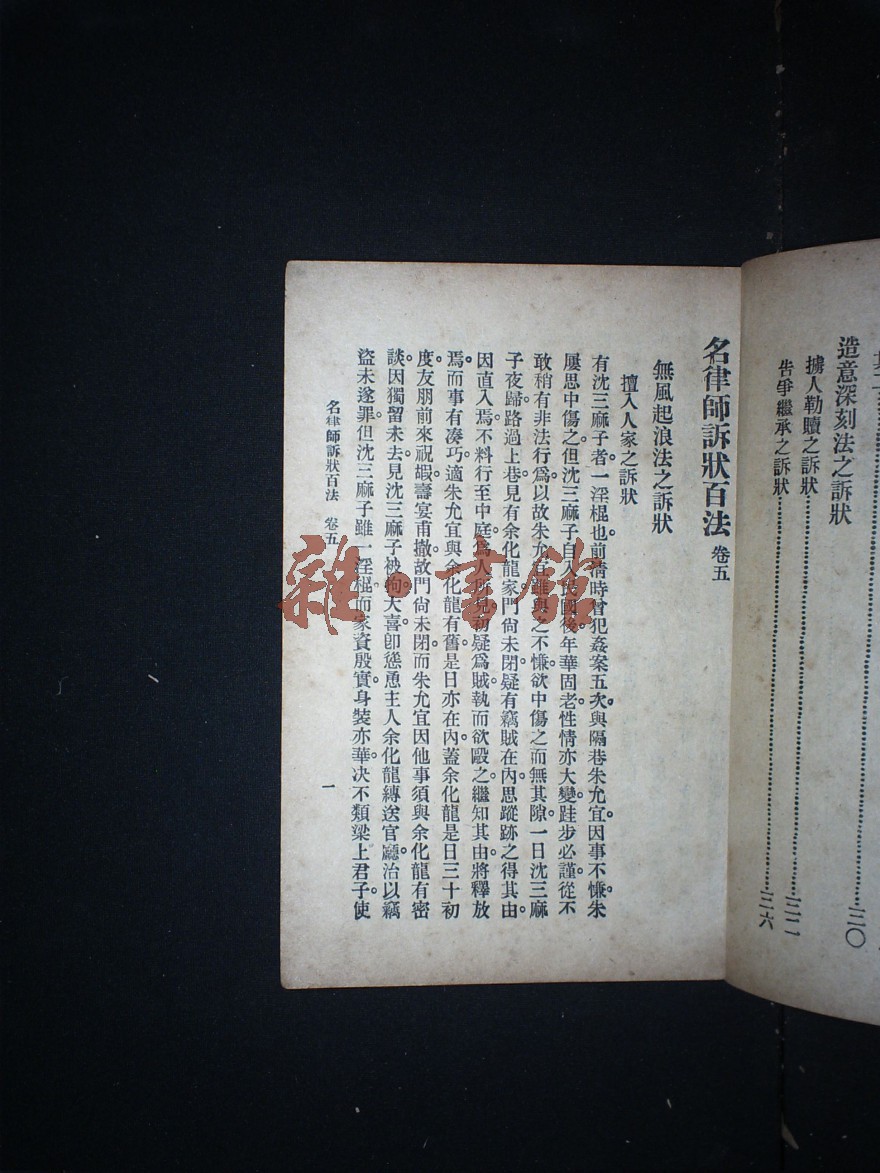 造意深刻法之訴狀……三〇
擄人勒贖之訴狀……三二
告爭繼承之訴狀……三六
名律師訴狀百法 卷五
無風起浪法之訴狀
擅入人家之訴狀
有沈三麻子者一淫棍也。前清時曾犯姦案五次。與隔巷朱允宜因事不慊。朱
屢思中傷之。但沈三麻子自入民國後。年華固老。性情亦大變。跬步必謹。從不
敢稍有非法行爲。以故朱允宜雖與之不慊。欲中傷之而無其隙。一日沈三麻
子夜歸。路過上巷。見有余化龍家門尙未閉。疑有竊賊在內。思蹤跡之得其由。
因直入焉。不料行至中庭。爲人所見。初疑爲賊。執而欲毆之。繼知其由。將釋放
焉。而事有湊巧。適朱允宜與余化龍有舊。是日亦在內。蓋余化龍是日三十初
度。友朋前來祝嘏。壽宴甫撤。故門尙未閉。而朱允宜因他事須與余化龍有密
談。因獨留未去。見沈三麻子被拘。大喜。卽慫恿主人余化龍縛送官廳。治以竊
盜未遂罪。但沈三麻子雖一淫棍。而家資殷實。身裝亦華。決不類梁上君子。使
名律師訴狀百法 卷五
一
雜·書館